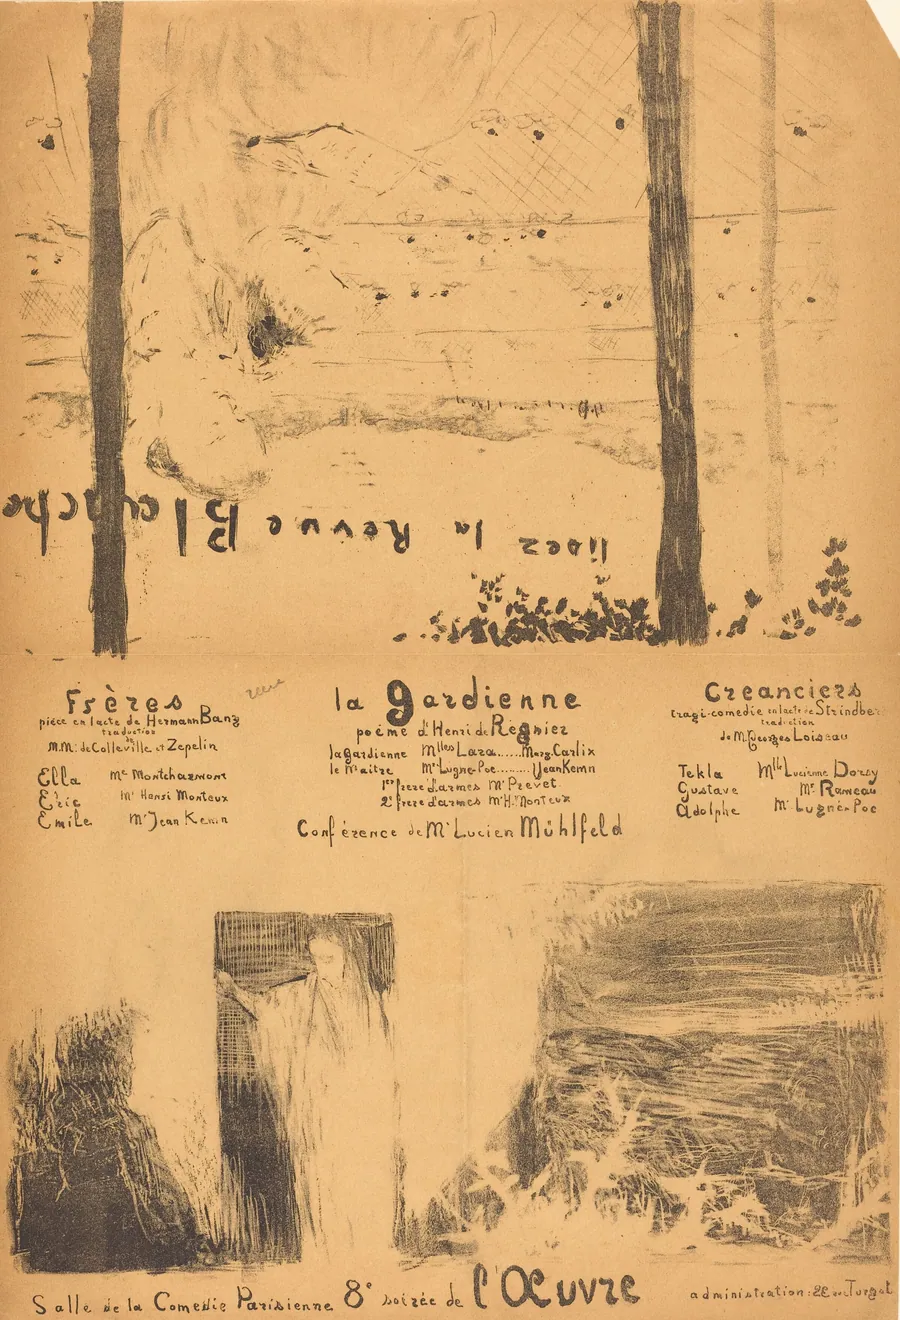 lisez la Revue Blanche
Frères
pièce en 1 acte de Hermann Bang
traduction
de
M.M. de Colleville et Zepelin
Ella Me Montcharmont
Eric Mr Henri Monteux
Emile Mr Jean Kemm
la gardienne
poème d'Henri de Régnier
la gardienne Mlles Lara......Marg. Carlix
le Maitre Mr Lugné-Poe.........Jean Kemm
1er frere d'armes Mr Prevet
2e frere d'armes Mr H. Monteux
Conférence de Mr Lucien Mühlfeld
Creanciers
tragi-comedie en 1 acte de Strindber
traduction
de M. Georges Loiseau
Tekla Mlle Lucienne Dorsy
Gustave Mr Rameau
Adolphe Mr Lugné-Poe
Salle de la Comedie Parisienne 8e soirée de l'Œuvre
administration: 2E rue Turgot